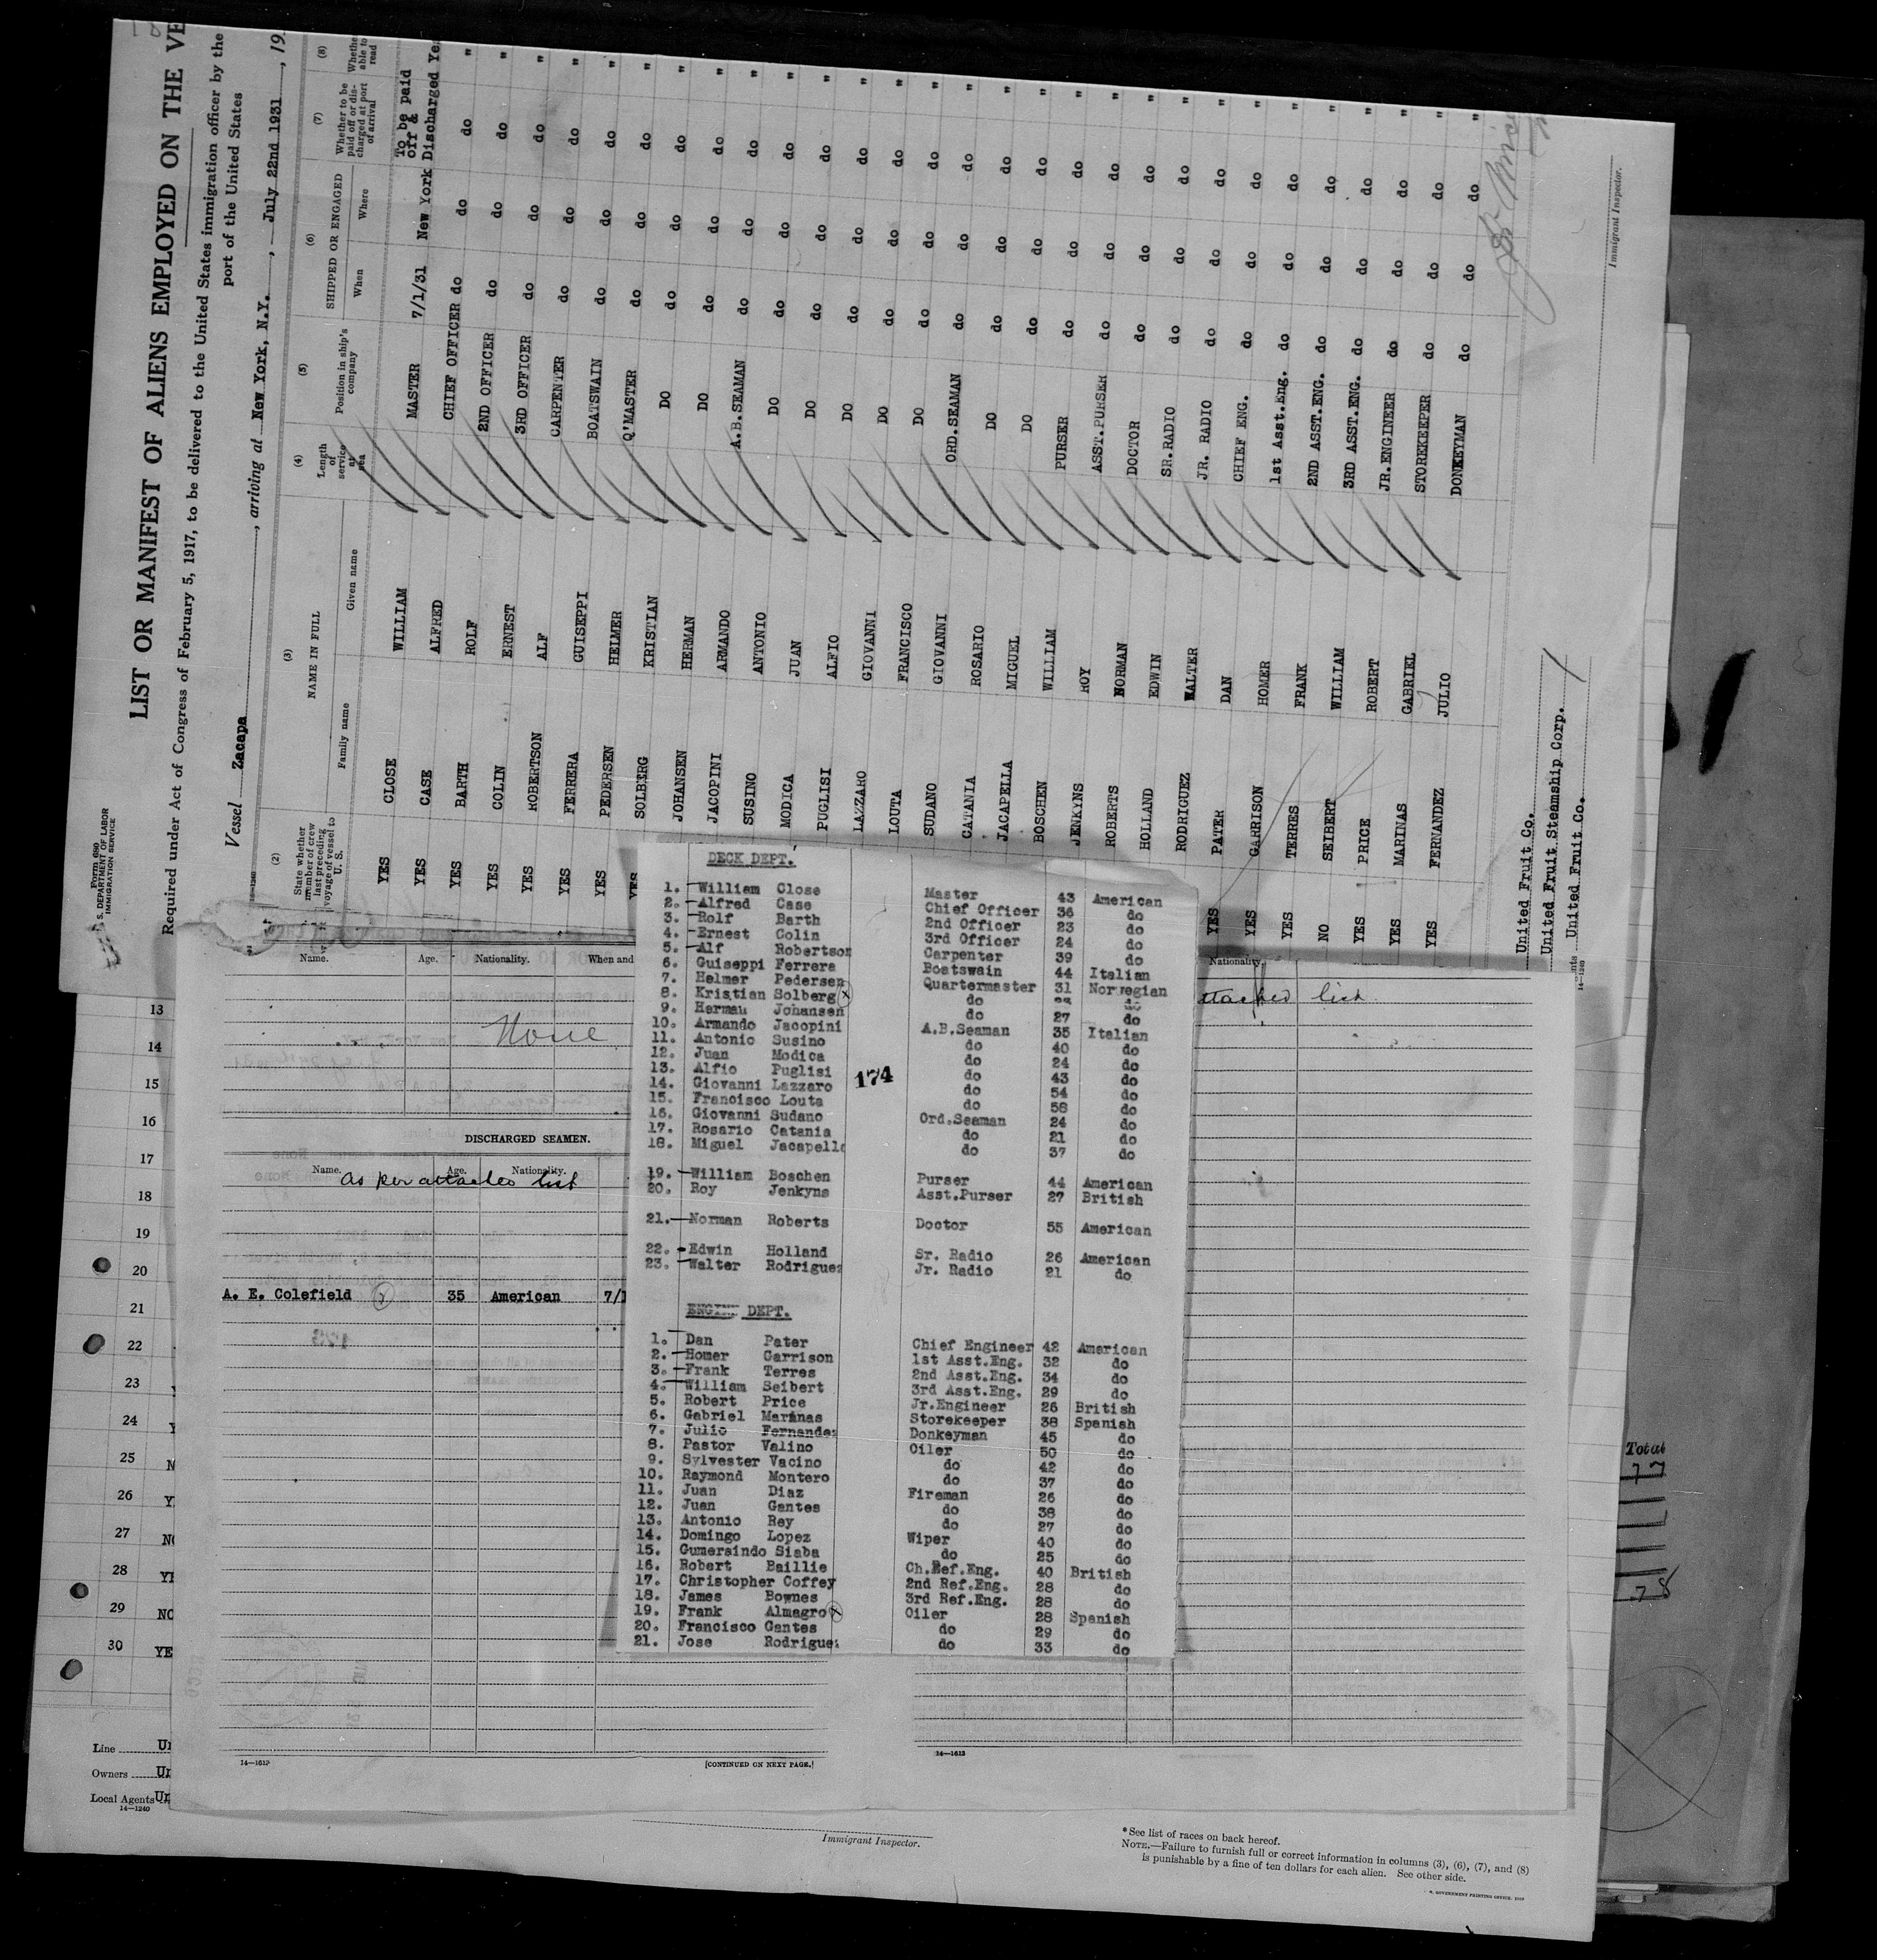 Form 680
U. S. DEPARTMENT OF LABOR
IMMIGRATION SERVICE
LIST OR MANIFEST OF ALIENS EMPLOYED ON THE VE
Required under Act of Congress of February 5, 1917, to be delivered to the United States immigration officer by the
port of the United States
Vessel Zacapa, arriving at New York, N.Y., July 22nd 1931, 19
(2) (3) (4) (5) (6) (7) (8)
State whether member of crew last preceding voyage of vessel to U. S. NAME IN FULL Family name Given name Length of service at sea Position in ship's company SHIPPED OR ENGAGED When Where Whether to be paid off or discharged at port of arrival Whether able to read
YES CLOSE WILLIAM MASTER 7/1/31 New York To be paid off & Discharged Ye
YES CASE ALFRED CHIEF OFFICER do do do "
YES BARTH ROLF 2ND OFFICER do do do "
YES COLIN ERNEST 3RD OFFICER do do do "
YES ROBERTSON ALF CARPENTER do do do "
YES FERRERA GUISEPPI BOATSWAIN do do do "
YES PEDERSEN HELMER Q'MASTER do do do "
YES SOLBERG KRISTIAN DO do do do "
JOHANSEN HERMAN DO do do do "
JACOPINI ARMANDO A.B.SEAMAN do do do "
SUSINO ANTONIO DO do do do "
MODICA JUAN DO do do do "
PUGLISI ALFIO DO do do do "
LAZZARO GIOVANNI DO do do do "
LOUTA FRANCISCO DO do do do "
SUDANO GIOVANNI ORD.SEAMAN do do do "
CATANIA ROSARIO DO do do do "
JACAPELLA MIGUEL DO do do do "
BOSCHEN WILLIAM PURSER do do do "
JENKYNS ROY ASST.PURSER do do do "
ROBERTS NORMAN DOCTOR do do do "
HOLLAND EDWIN SR.RADIO do do do "
RODRIGUEZ WALTER JR. RADIO do do do "
YES PATER DAN CHIEF ENG. do do do "
YES GARRISON HOMER 1st Asst.Eng. do do do "
YES TERRES FRANK 2ND ASST.ENG. do do do "
NO SEIBERT WILLIAM 3RD ASST.ENG. do do do "
YES PRICE ROBERT JR.ENGINEER do do do "
YES MARINAS GABRIEL STOREKEEPER do do do "
YES FERNANDEZ JULIO DONKEYMAN do do do "
United Fruit Co.
United Fruit Steamship Corp.
United Fruit Co.
14—1240
Immigrant Inspector.
DECK DEPT.
1. William Close Master 43 American
2. Alfred Case Chief Officer 36 do
3. Rolf Barth 2nd Officer 23 do
4. Ernest Colin 3rd Officer 24 do
5. Alf Robertson Carpenter 39 do
6. Guiseppi Ferrera Boatswain 44 Italian
7. Helmer Pedersen Quartermaster 31 Norwegian
8. Kristian Solberg do do
9. Herman Johansen do 27 do
10. Armando Jacopini A.B.Seaman 35 Italian
11. Antonio Susino do 40 do
12. Juan Modica do 24 do
13. Alfio Puglisi do 43 do
14. Giovanni Lazzaro do 54 do
15. Francisco Louta do 58 do
16. Giovanni Sudano Ord.Seaman 24 do
17. Rosario Catania do 21 do
18. Miguel Jacapella do 37 do
174
19. William Boschen Purser 44 American
20. Roy Jenkyns Asst.Purser 27 British
21. Norman Roberts Doctor 55 American
22. Edwin Holland Sr. Radio 26 American
23. Walter Rodriguez Jr. Radio 21 do
ENGINE DEPT.
1. Dan Pater Chief Engineer 42 American
2. Homer Garrison 1st Asst.Eng. 32 do
3. Frank Terres 2nd Asst.Eng. 34 do
4. William Seibert 3rd Asst.Eng. 29 do
5. Robert Price Jr.Engineer 26 British
6. Gabriel Marinas Storekeeper 38 Spanish
7. Julio Fernandez Donkeyman 45 do
8. Pastor Valino Oiler 50 do
9. Sylvester Vacino do 42 do
10. Raymond Montero do 37 do
11. Juan Diaz Fireman 26 do
12. Juan Gantes do 38 do
13. Antonio Rey do 27 do
14. Domingo Lopez Wiper 40 do
15. Gumersindo Siaba do 25 do
16. Robert Baillie Ch.Ref.Eng. 40 British
17. Christopher Coffey 2nd Ref.Eng. 28 do
18. James Bownes 3rd Ref.Eng. 28 do
19. Frank Almagro Oiler 28 Spanish
20. Francisco Gantes do 29 do
21. Jose Rodriguez do 33 do
Name. Age. Nationality. When and
None
DISCHARGED SEAMEN.
Name. Age. Nationality.
as per attached list
A. E. Colefield 35 American 7/1
14—1613
[CONTINUED ON NEXT PAGE.]
Nationality.
attached list
14—1613
13
14
15
16
17
18
19
20
21
22
23
24 Y
25 N
26 Y
27 NO
28 YE
29 NO
30 YE
Line Un
Owners Un
Local Agents Un
14—1240
Immigrant Inspector.
*See list of races on back hereof.
NOTE.—Failure to furnish full or correct information in columns (3), (6), (7), and (8)
is punishable by a fine of ten dollars for each alien. See other side.
Total
77
78